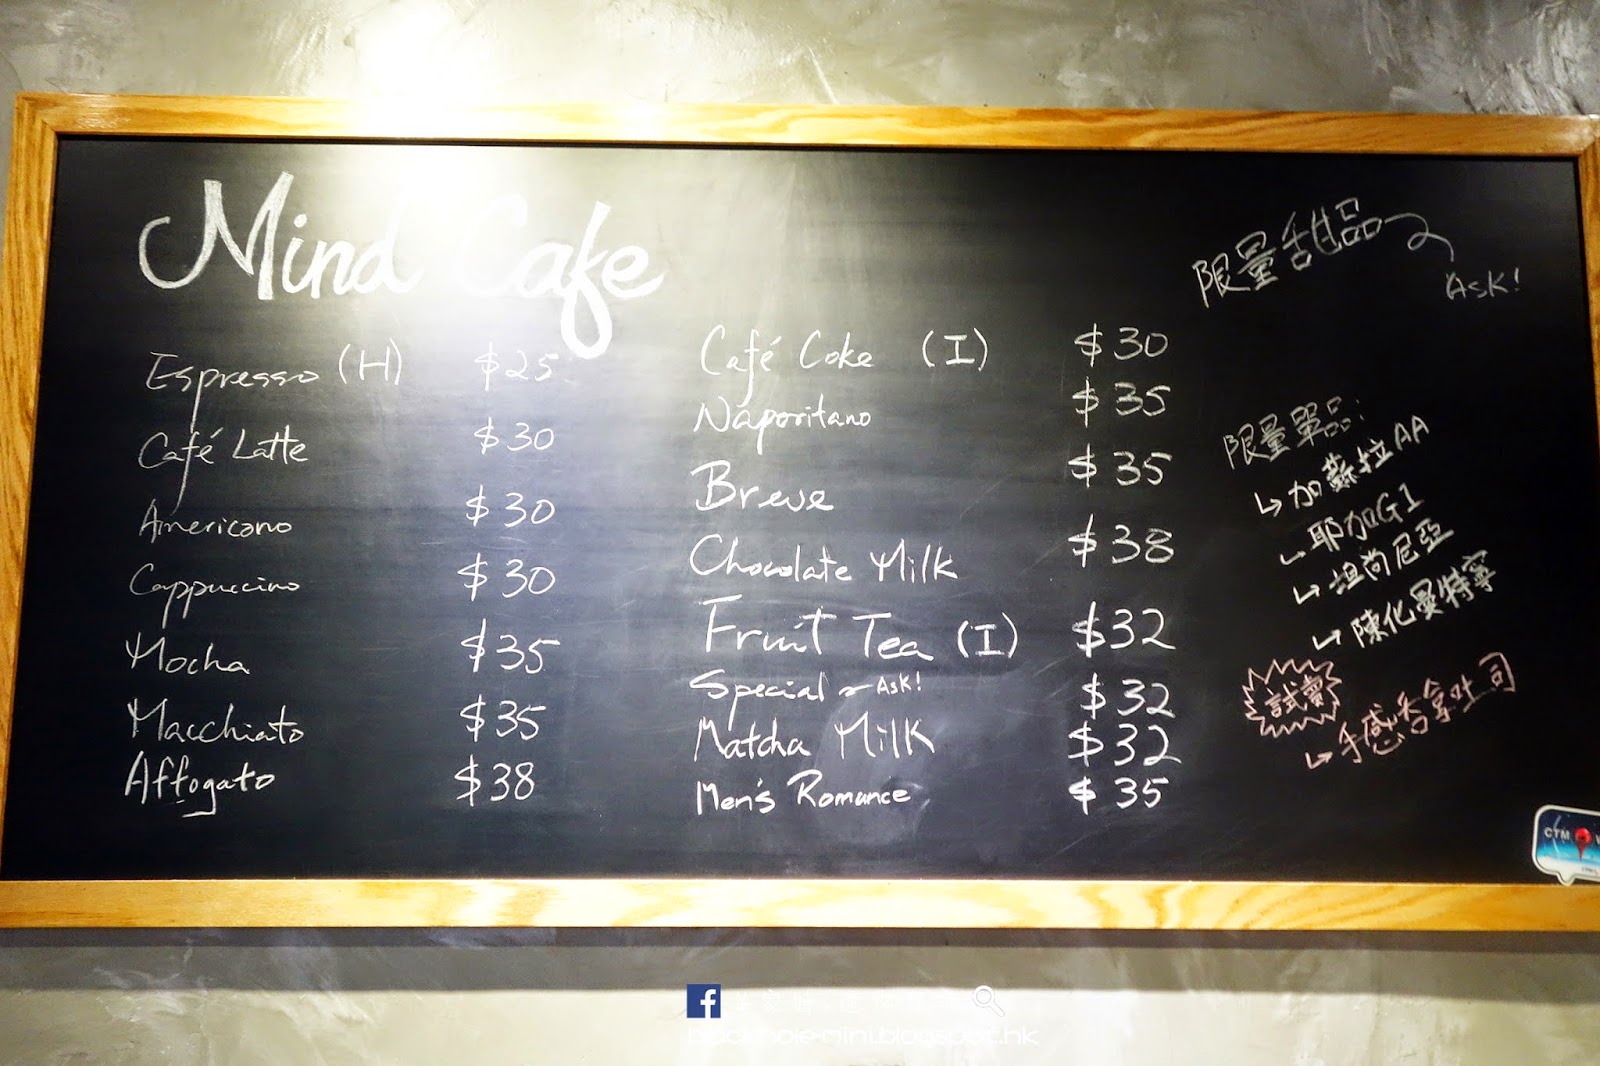 Mind Cafe
Espresso (H) $25
Café Latte $30
Americano $30
Cappuccino $30
Mocha $35
Macchiato $35
Affogato $38
Café Coke (I) $30
Naporitano $35
Breve $35
Chocolate Milk $38
Fruit Tea (I) $32
Special ~ Ask! $32
Matcha Milk $32
Men's Romance $35
限量甜品
Ask!
限量單品:
↳ 加蘇拉AA
↳ 耶加G1
↳ 坦尚尼亞
↳ 陳化曼特寧
試賣
↳ 手感香拿吐司
CTM